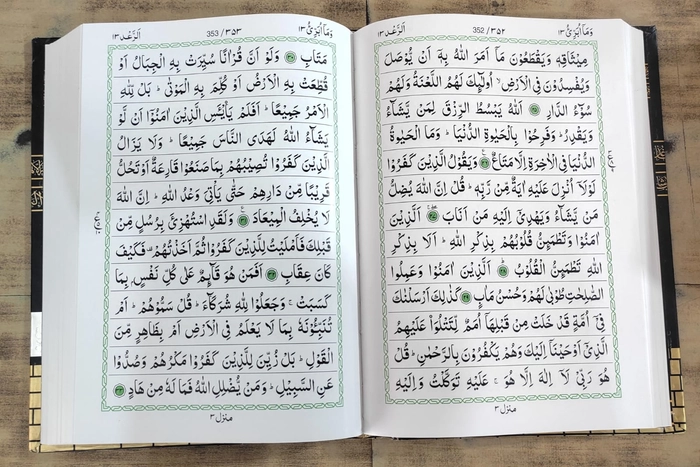 وَمَآ اُبَرِّئُ ١٣
352 / ٣٥٢
اَلرَّعْد ١٣
مِيْثَاقِهٖ وَيَقْطَعُوْنَ مَآ اَمَرَ اللّٰهُ بِهٖٓ اَنْ يُّوْصَلَ
وَيُفْسِدُوْنَ فِى الْاَرْضِ ۙ اُولٰٓئِكَ لَهُمُ اللَّعْنَةُ وَلَهُمْ
سُوْٓءُ الدَّارِ ۝٢٥ اَللّٰهُ يَبْسُطُ الرِّزْقَ لِمَنْ يَّشَآءُ
وَيَقْدِرُ ؕ وَفَرِحُوْا بِالْحَيٰوةِ الدُّنْيَا ؕ وَمَا الْحَيٰوةُ
الدُّنْيَا فِى الْاٰخِرَةِ اِلَّا مَتَاعٌ ۝٢٦ وَيَقُوْلُ الَّذِيْنَ كَفَرُوْا
لَوْلَآ اُنْزِلَ عَلَيْهِ اٰيَةٌ مِّنْ رَّبِّهٖ ؕ قُلْ اِنَّ اللّٰهَ يُضِلُّ
مَنْ يَّشَآءُ وَيَهْدِىْٓ اِلَيْهِ مَنْ اَنَابَ ۝٢٧ اَلَّذِيْنَ
اٰمَنُوْا وَتَطْمَئِنُّ قُلُوْبُهُمْ بِذِكْرِ اللّٰهِ ؕ اَلَا بِذِكْرِ
اللّٰهِ تَطْمَئِنُّ الْقُلُوْبُ ۝٢٨ اَلَّذِيْنَ اٰمَنُوْا وَعَمِلُوا
الصّٰلِحٰتِ طُوْبٰى لَهُمْ وَحُسْنُ مَاٰبٍ ۝٢٩ كَذٰلِكَ اَرْسَلْنٰكَ
فِىْٓ اُمَّةٍ قَدْ خَلَتْ مِنْ قَبْلِهَآ اُمَمٌ لِّتَتْلُوَا۟ عَلَيْهِمُ
الَّذِىْٓ اَوْحَيْنَآ اِلَيْكَ وَهُمْ يَكْفُرُوْنَ بِالرَّحْمٰنِ ؕ قُلْ
هُوَ رَبِّىْ لَآ اِلٰهَ اِلَّا هُوَ ۚ عَلَيْهِ تَوَكَّلْتُ وَاِلَيْهِ
منزل ٣
وَمَآ اُبَرِّئُ ١٣
353 / ٣٥٣
اَلرَّعْد ١٣
مَتَابِ ۝٣٠ وَلَوْ اَنَّ قُرْاٰنًا سُيِّرَتْ بِهِ الْجِبَالُ اَوْ
قُطِّعَتْ بِهِ الْاَرْضُ اَوْ كُلِّمَ بِهِ الْمَوْتٰى ؕ بَلْ لِّلّٰهِ
الْاَمْرُ جَمِيْعًا ؕ اَفَلَمْ يَايْـَٔسِ الَّذِيْنَ اٰمَنُوْٓا اَنْ لَّوْ
يَشَآءُ اللّٰهُ لَهَدَى النَّاسَ جَمِيْعًا ؕ وَلَا يَزَالُ
الَّذِيْنَ كَفَرُوْا تُصِيْبُهُمْ بِمَا صَنَعُوْا قَارِعَةٌ اَوْ تَحُلُّ
قَرِيْبًا مِّنْ دَارِهِمْ حَتّٰى يَاْتِىَ وَعْدُ اللّٰهِ ؕ اِنَّ اللّٰهَ
لَا يُخْلِفُ الْمِيْعَادَ ۝٣١ وَلَقَدِ اسْتُهْزِئَ بِرُسُلٍ مِّنْ
قَبْلِكَ فَاَمْلَيْتُ لِلَّذِيْنَ كَفَرُوْا ثُمَّ اَخَذْتُهُمْ ۟ فَكَيْفَ
كَانَ عِقَابِ ۝٣٢ اَفَمَنْ هُوَ قَآئِمٌ عَلٰى كُلِّ نَفْسٍۭ بِمَا
كَسَبَتْ ۚ وَجَعَلُوْا لِلّٰهِ شُرَكَآءَ ؕ قُلْ سَمُّوْهُمْ ؕ اَمْ
تُنَبِّـُٔوْنَهٗ بِمَا لَا يَعْلَمُ فِى الْاَرْضِ اَمْ بِظَاهِرٍ مِّنَ
الْقَوْلِ ؕ بَلْ زُيِّنَ لِلَّذِيْنَ كَفَرُوْا مَكْرُهُمْ وَصُدُّوْا
عَنِ السَّبِيْلِ ؕ وَمَنْ يُّضْلِلِ اللّٰهُ فَمَا لَهٗ مِنْ هَادٍ ۝٣٣
منزل ٣